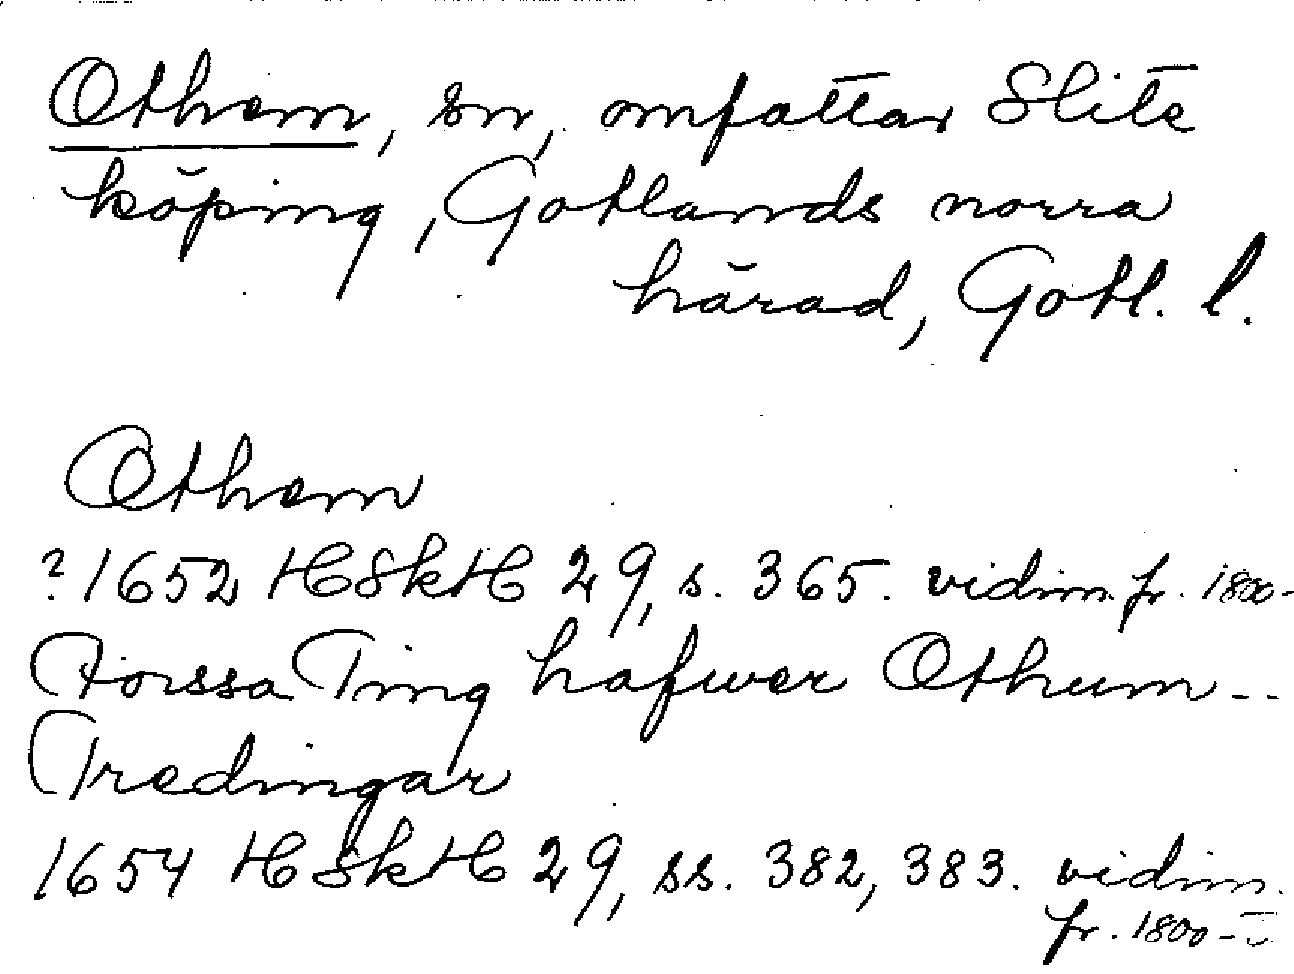 Othem, sn, omfattar Slite
köping, Gotlands norra
härad, Gotl. l.
Othem
? 1652 HSkH 29, s. 365. vidim. fr. 1800-
Forssa Ting hafwer Othum--
Tredingar
1654 HSkH 29, ss. 382, 383. vidim.
fr. 1800-t.